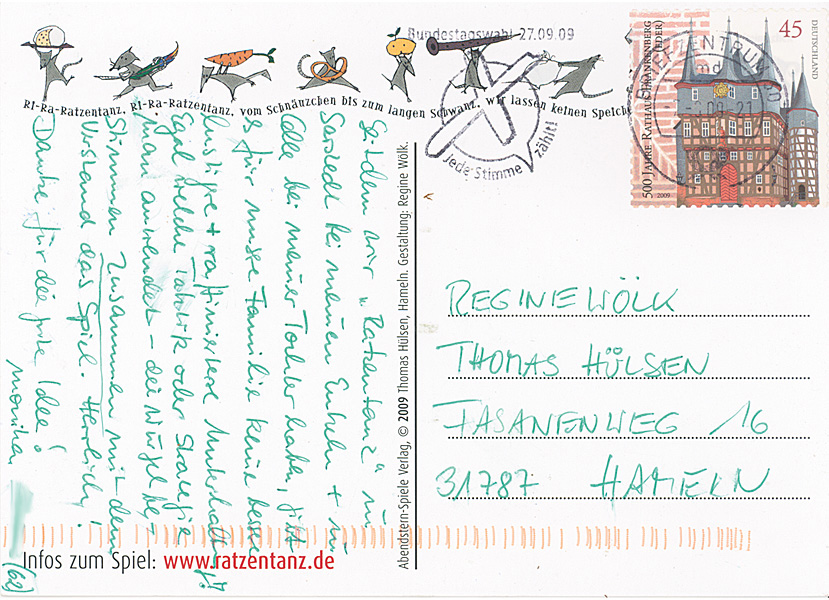 RI-Ra-Ratzentanz, RI-Ra-Ratzentanz, vom Schnäuzchen bis zum langen Schwanz, wir lassen keinen Speiche
Bundestagswahl 27.09.09
Jede Stimme zählt!
BRIEFZENTRUM
500 JAHRE RATHAUS FRANKENBERG (EDER)
45
DEUTSCHLAND
2009
Seitdem wir "Ratzentanz" in
Sarstedt bei meinen Enkeln + in
Celle bei meiner Tochter haben, gibt
es für unsere Familie keine bessere
lustige + raffiniertere Unterhaltung!
Egal welche Taktik oder Strategie
man anwendet - die Würfel be-
stimmen zusammen mit dem
Verstand das Spiel. Herrlich!
Danke für die gute Idee!
Monika
(62)
Abendstern-Spiele Verlag, © 2009 Thomas Hülsen, Hameln. Gestaltung: Regine Wölk.
REGINE WÖLK
THOMAS HÜLSEN
FASANENWEG 16
31787 HAMELN
Infos zum Spiel: www.ratzentanz.de